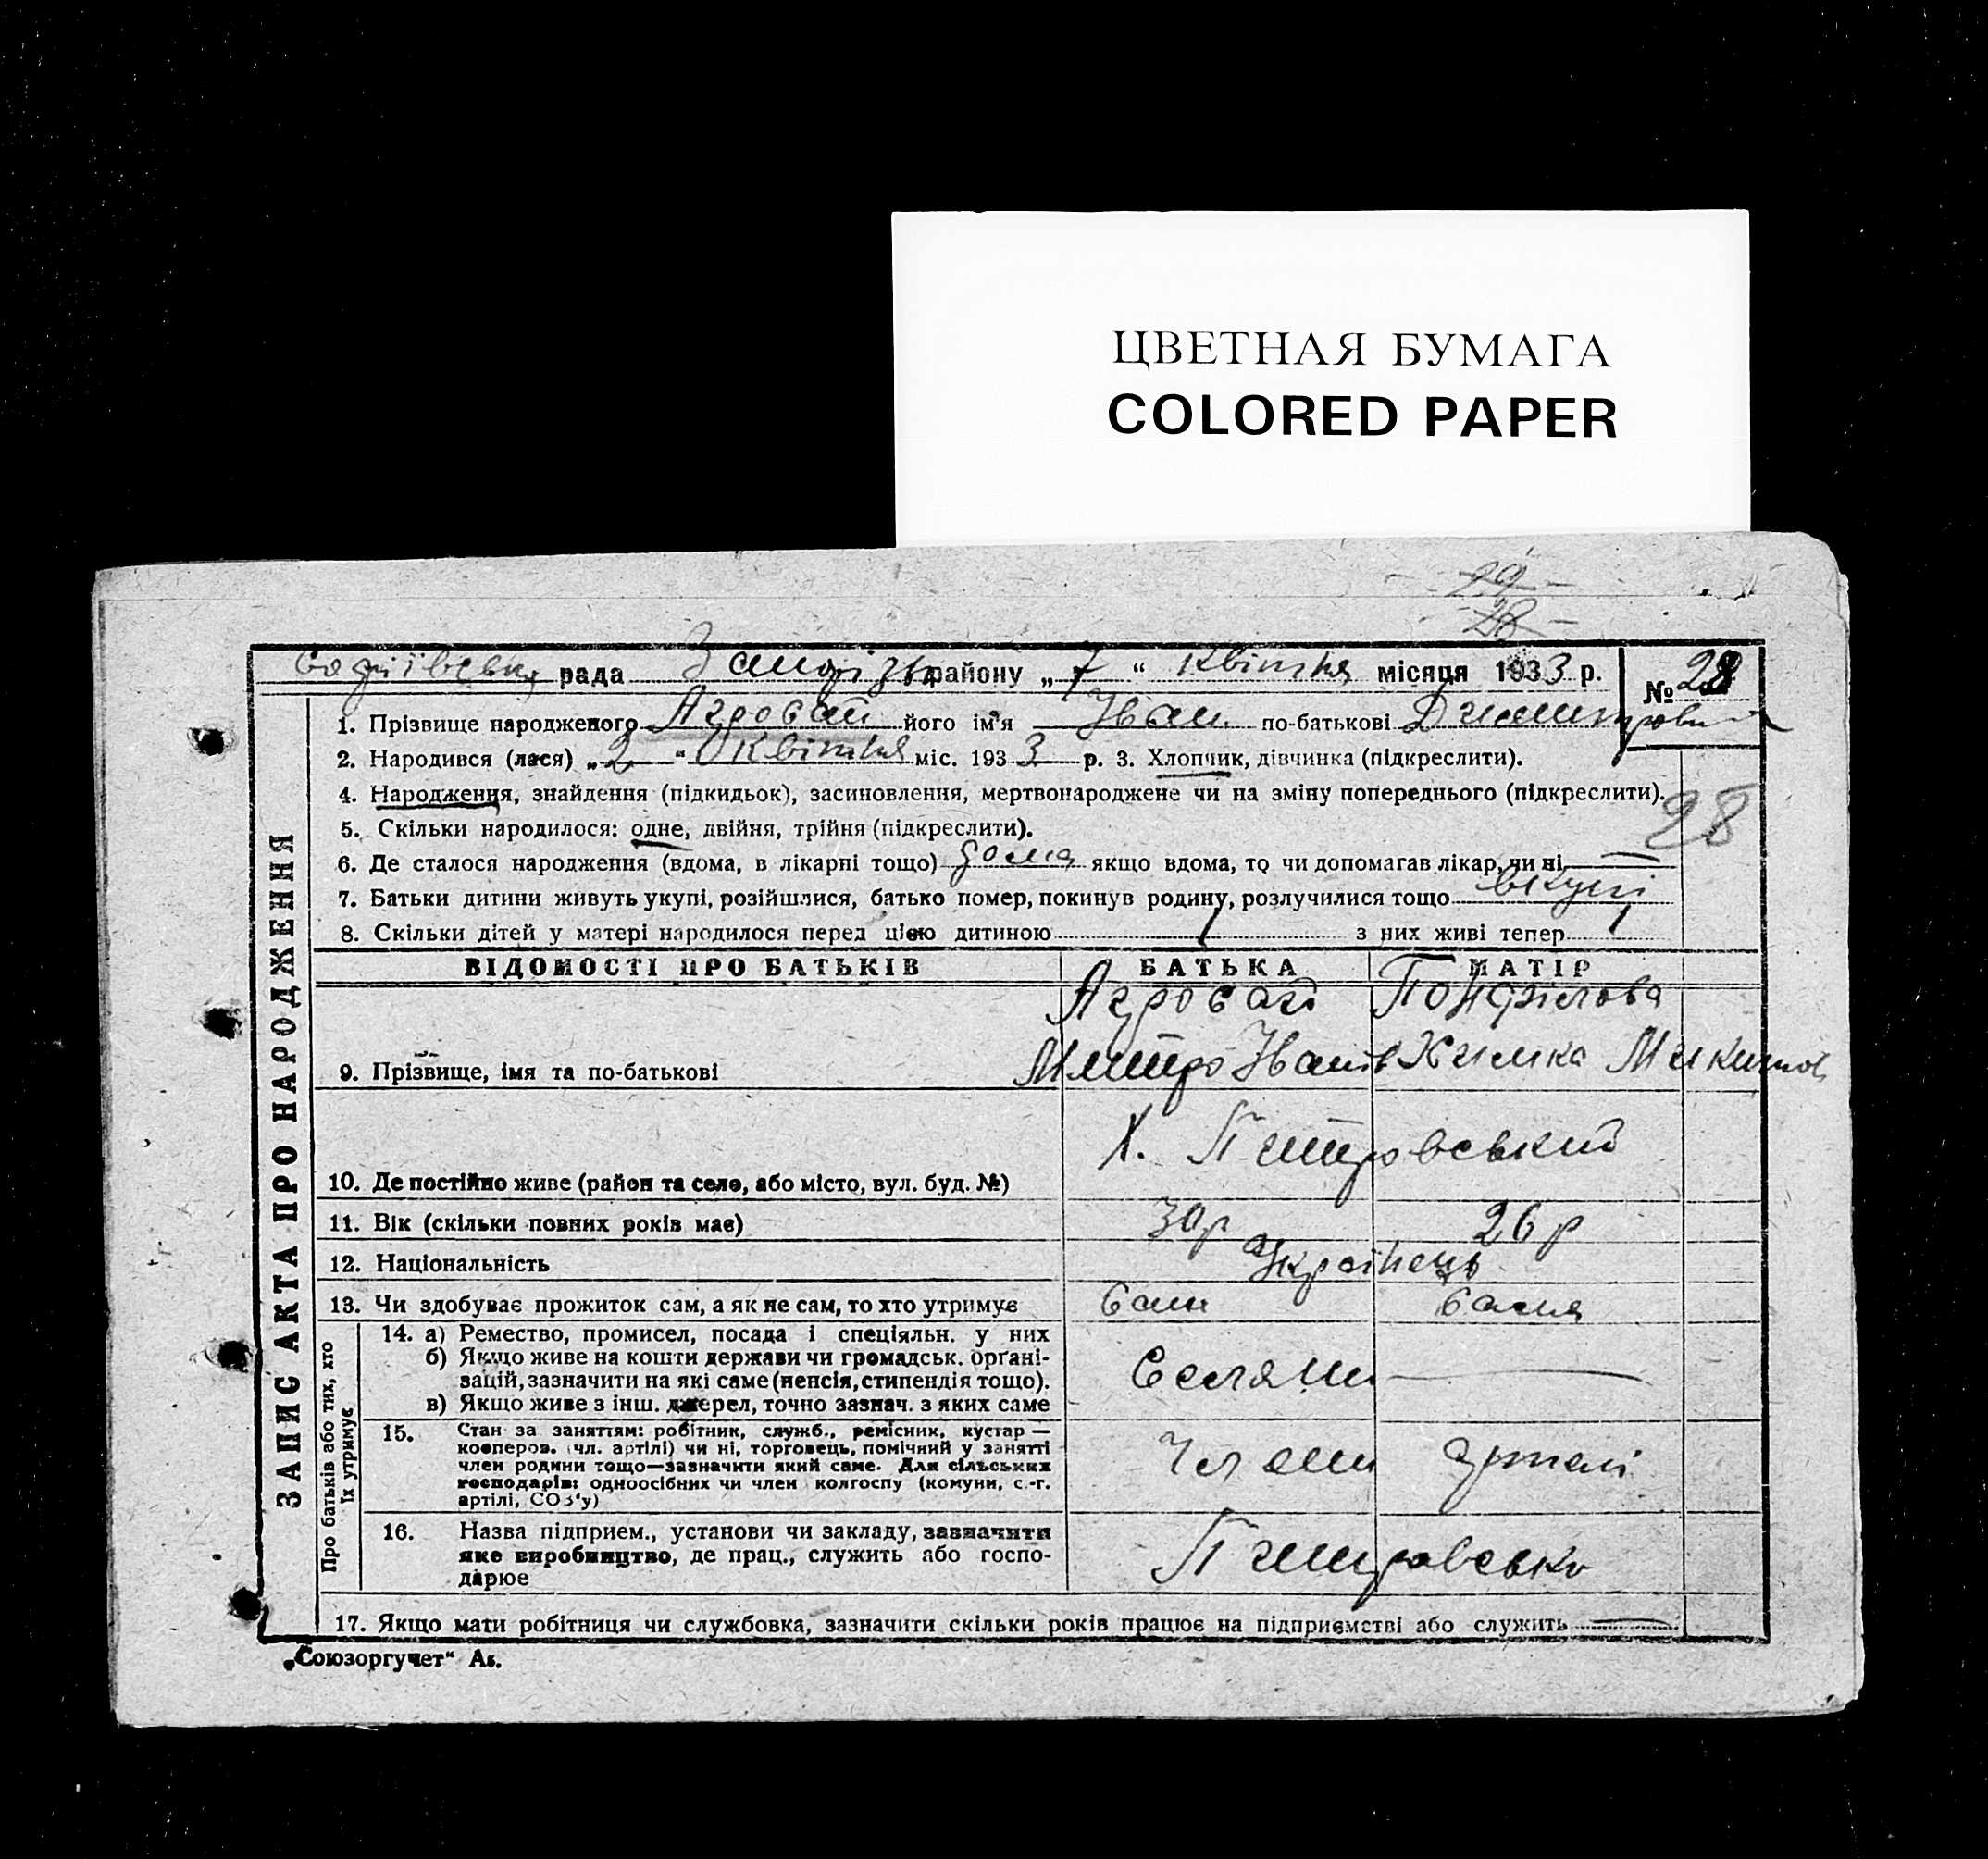 ЦВЕТНАЯ БУМАГА
COLORED PAPER
29
28
рада района „7“ квітня місяця 1933 р. № 28
1. Прізвище народженого його ім'я Іван по-батькові
2. Народився (лася) „2“ квітня міс. 1933 р. 3. Хлопчик, дівчинка (підкреслити).
4. Народження, знайдення (підкидьок), засиновлення, мертвонароджене чи на зміну попереднього (підкреслити).
28
5. Скільки народилося: одне, двійня, трійня (підкреслити).
6. Де сталося народження (вдома, в лікарні тощо) дома якщо вдома, то чи допомагав лікар, чи ні —
7. Батьки дитини живуть укупі, розійшлися, батько помер, покинув родину, розлучилися тощо вкупі
8. Скільки дітей у матері народилося перед цією дитиною 1 з них живі тепер 1
ЗАПИС АКТА ПРО НАРОДЖЕННЯ
ВІДОМОСТІ ПРО БАТЬКІВ БАТЬКА МАТІР
9. Прізвище, імя та по-батькові
Химка
10. Де постійно живе (район та село, або місто, вул. буд. №)
Х. Питровський
11. Вік (скільки повних років має) 30р 26р
12. Національність Українець
13. Чи здобуває прожиток сам, а як не сам, то хто утримує сам сама
Про батьків або тих, хто їх утримує
14. а) Ремество, промисел, посада і спеціяльн. у них
б) Якщо живе на кошти держави чи громадськ. органі-
зацій, зазначити на які саме (пенсія, стипендія тощо).
в) Якщо живе з інш. джерел, точно зазнач. з яких саме
Селянин —
15. Стан за заняттям: робітник, служб., ремісник, кустар —
кооперов. (чл. артілі) чи ні, торговець, помічний у занятті
член родини тощо—зазначити який саме. Для сільських
господарів: одноосібних чи член колгоспу (комуни, с.-г.
артілі, СОЗ'у)
Член артілі
16. Назва підприєм., установи чи закладу, зазначити
яке виробництво, де прац., служить або госпо-
дарює
17. Якщо мати робітниця чи службовка, зазначити скільки років працює на підприємстві або служить —
„Союзоргучет“